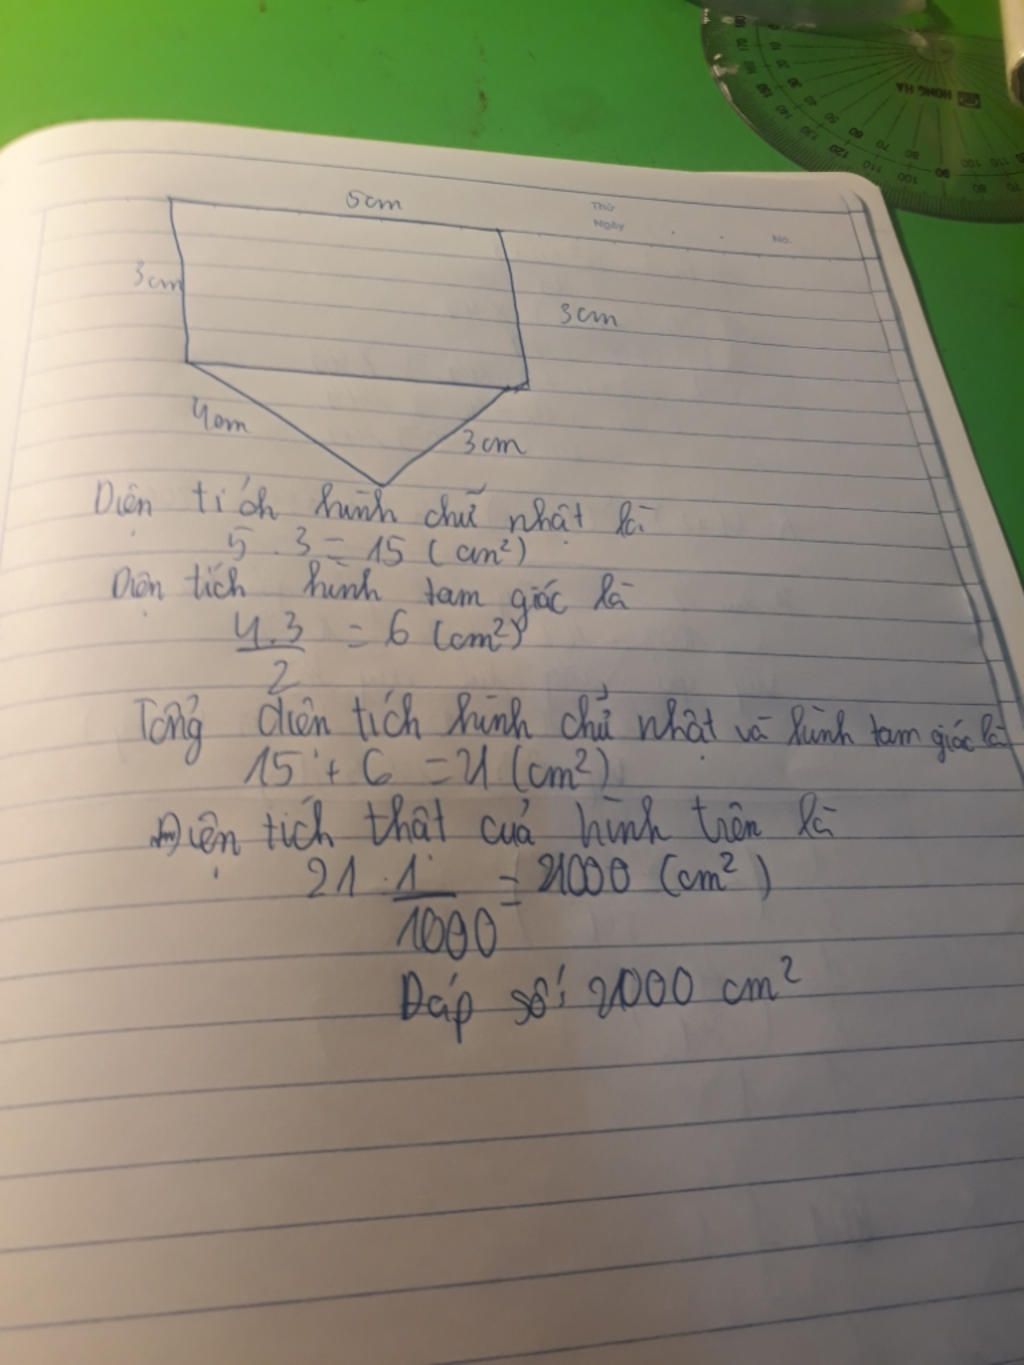 HONG HA
5cm
Thứ
Ngày
No.
3cm
3cm
4cm
3cm
Diện tích hình chữ nhật là
5 . 3 = 15 (cm²)
Diện tích hình tam giác là
4.3
2
= 6 (cm²)
Tổng diện tích hình chữ nhật và hình tam giác là
15 + 6 = 21 (cm²)
Diện tích thật cuả hình trên là
21 . 1
1000
= 21000 (cm²)
Đáp số: 21000 cm²